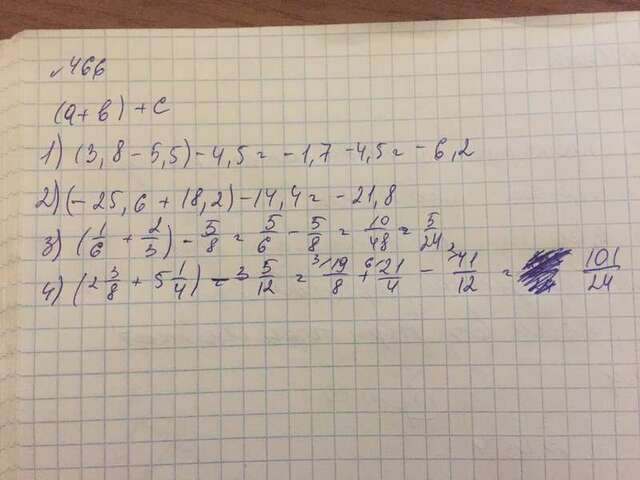 № 466
(a + b) + c
1) (3,8 - 5,5) - 4,5 = -1,7 - 4,5 = -6,2
2) (-25,6 + 18,2) - 14,4 = -21,8
3) (1/6 + 2/3) - 5/8 = 5/6 - 5/8 = 10/48 = 5/24
4) (2 3/8 + 5 1/4) - 3 5/12 = 3 19/8 + 6 21/4 - 2 41/12 = 101/24